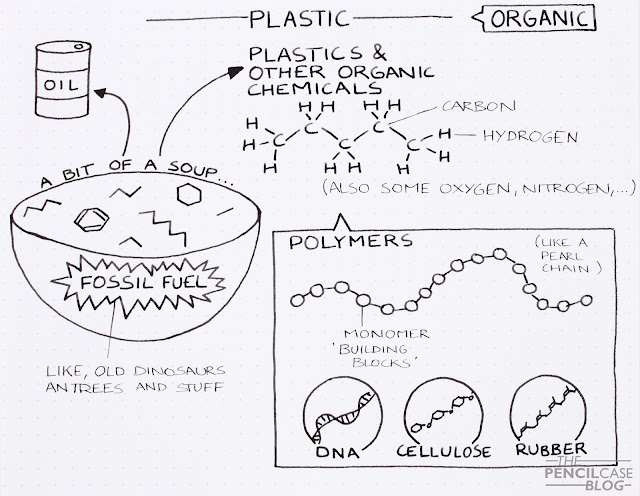 PLASTIC
ORGANIC
OIL
PLASTICS &
OTHER ORGANIC
CHEMICALS
H H H H
H C C CARBON
H C C C H HYDROGEN
H H H H H H
(ALSO SOME OXYGEN, NITROGEN,...)
A BIT OF A SOUP...
FOSSIL FUEL
LIKE, OLD DINOSAURS
AN TREES AND STUFF
POLYMERS
(LIKE A
PEARL
CHAIN)
MONOMER
'BUILDING
BLOCKS'
DNA
CELLULOSE
RUBBER
THE
PENCILCASE
BLOG